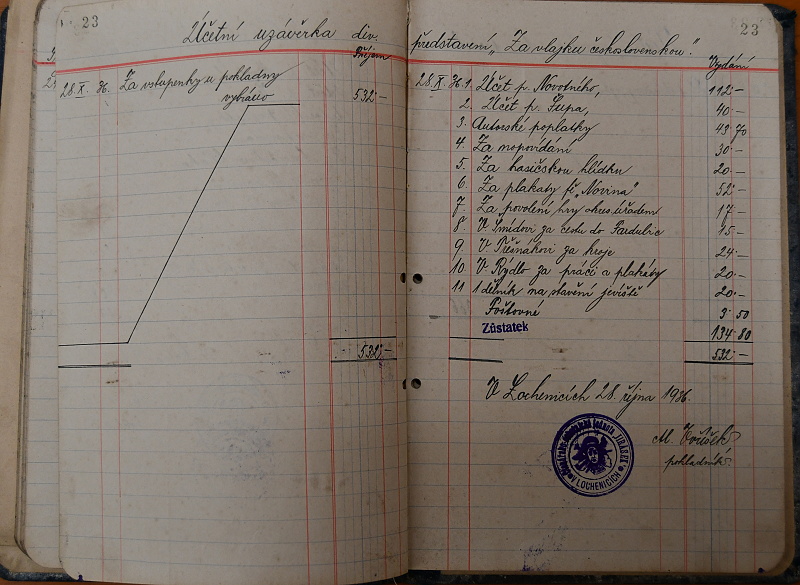 23
Účetní uzávěrka div.
Příjem
28.X. 36. Za vstupenky u pokladny
vybráno 532·–
532·–
23
představení „Za vlajku československou."
Vydání
28.X. 36. 1. Účet p. Novotného, 112·–
2. Účet p. Šupa, 40·–
3. Autorské poplatky 43·70
4. Za napovídání 30·–
5. Za hasičskou hlídku 20·–
6. Za plakaty fě „Novina" 52·–
7. Za povolení hry okres. úřadem 17·–
8. V. Šmídovi za cestu do Pardubic 15·–
9. V. za kroje 24·–
10. V. Rýdlo za práci a plakáty 20·–
11. 1 dělník na stavění jeviště 20·–
Poštovné 3·50
Zůstatek 134·80
532·–
V Lochenicích 28. října 1936.
JIRÁSEK
V LOCHENICÍCH
M.
pokladník.